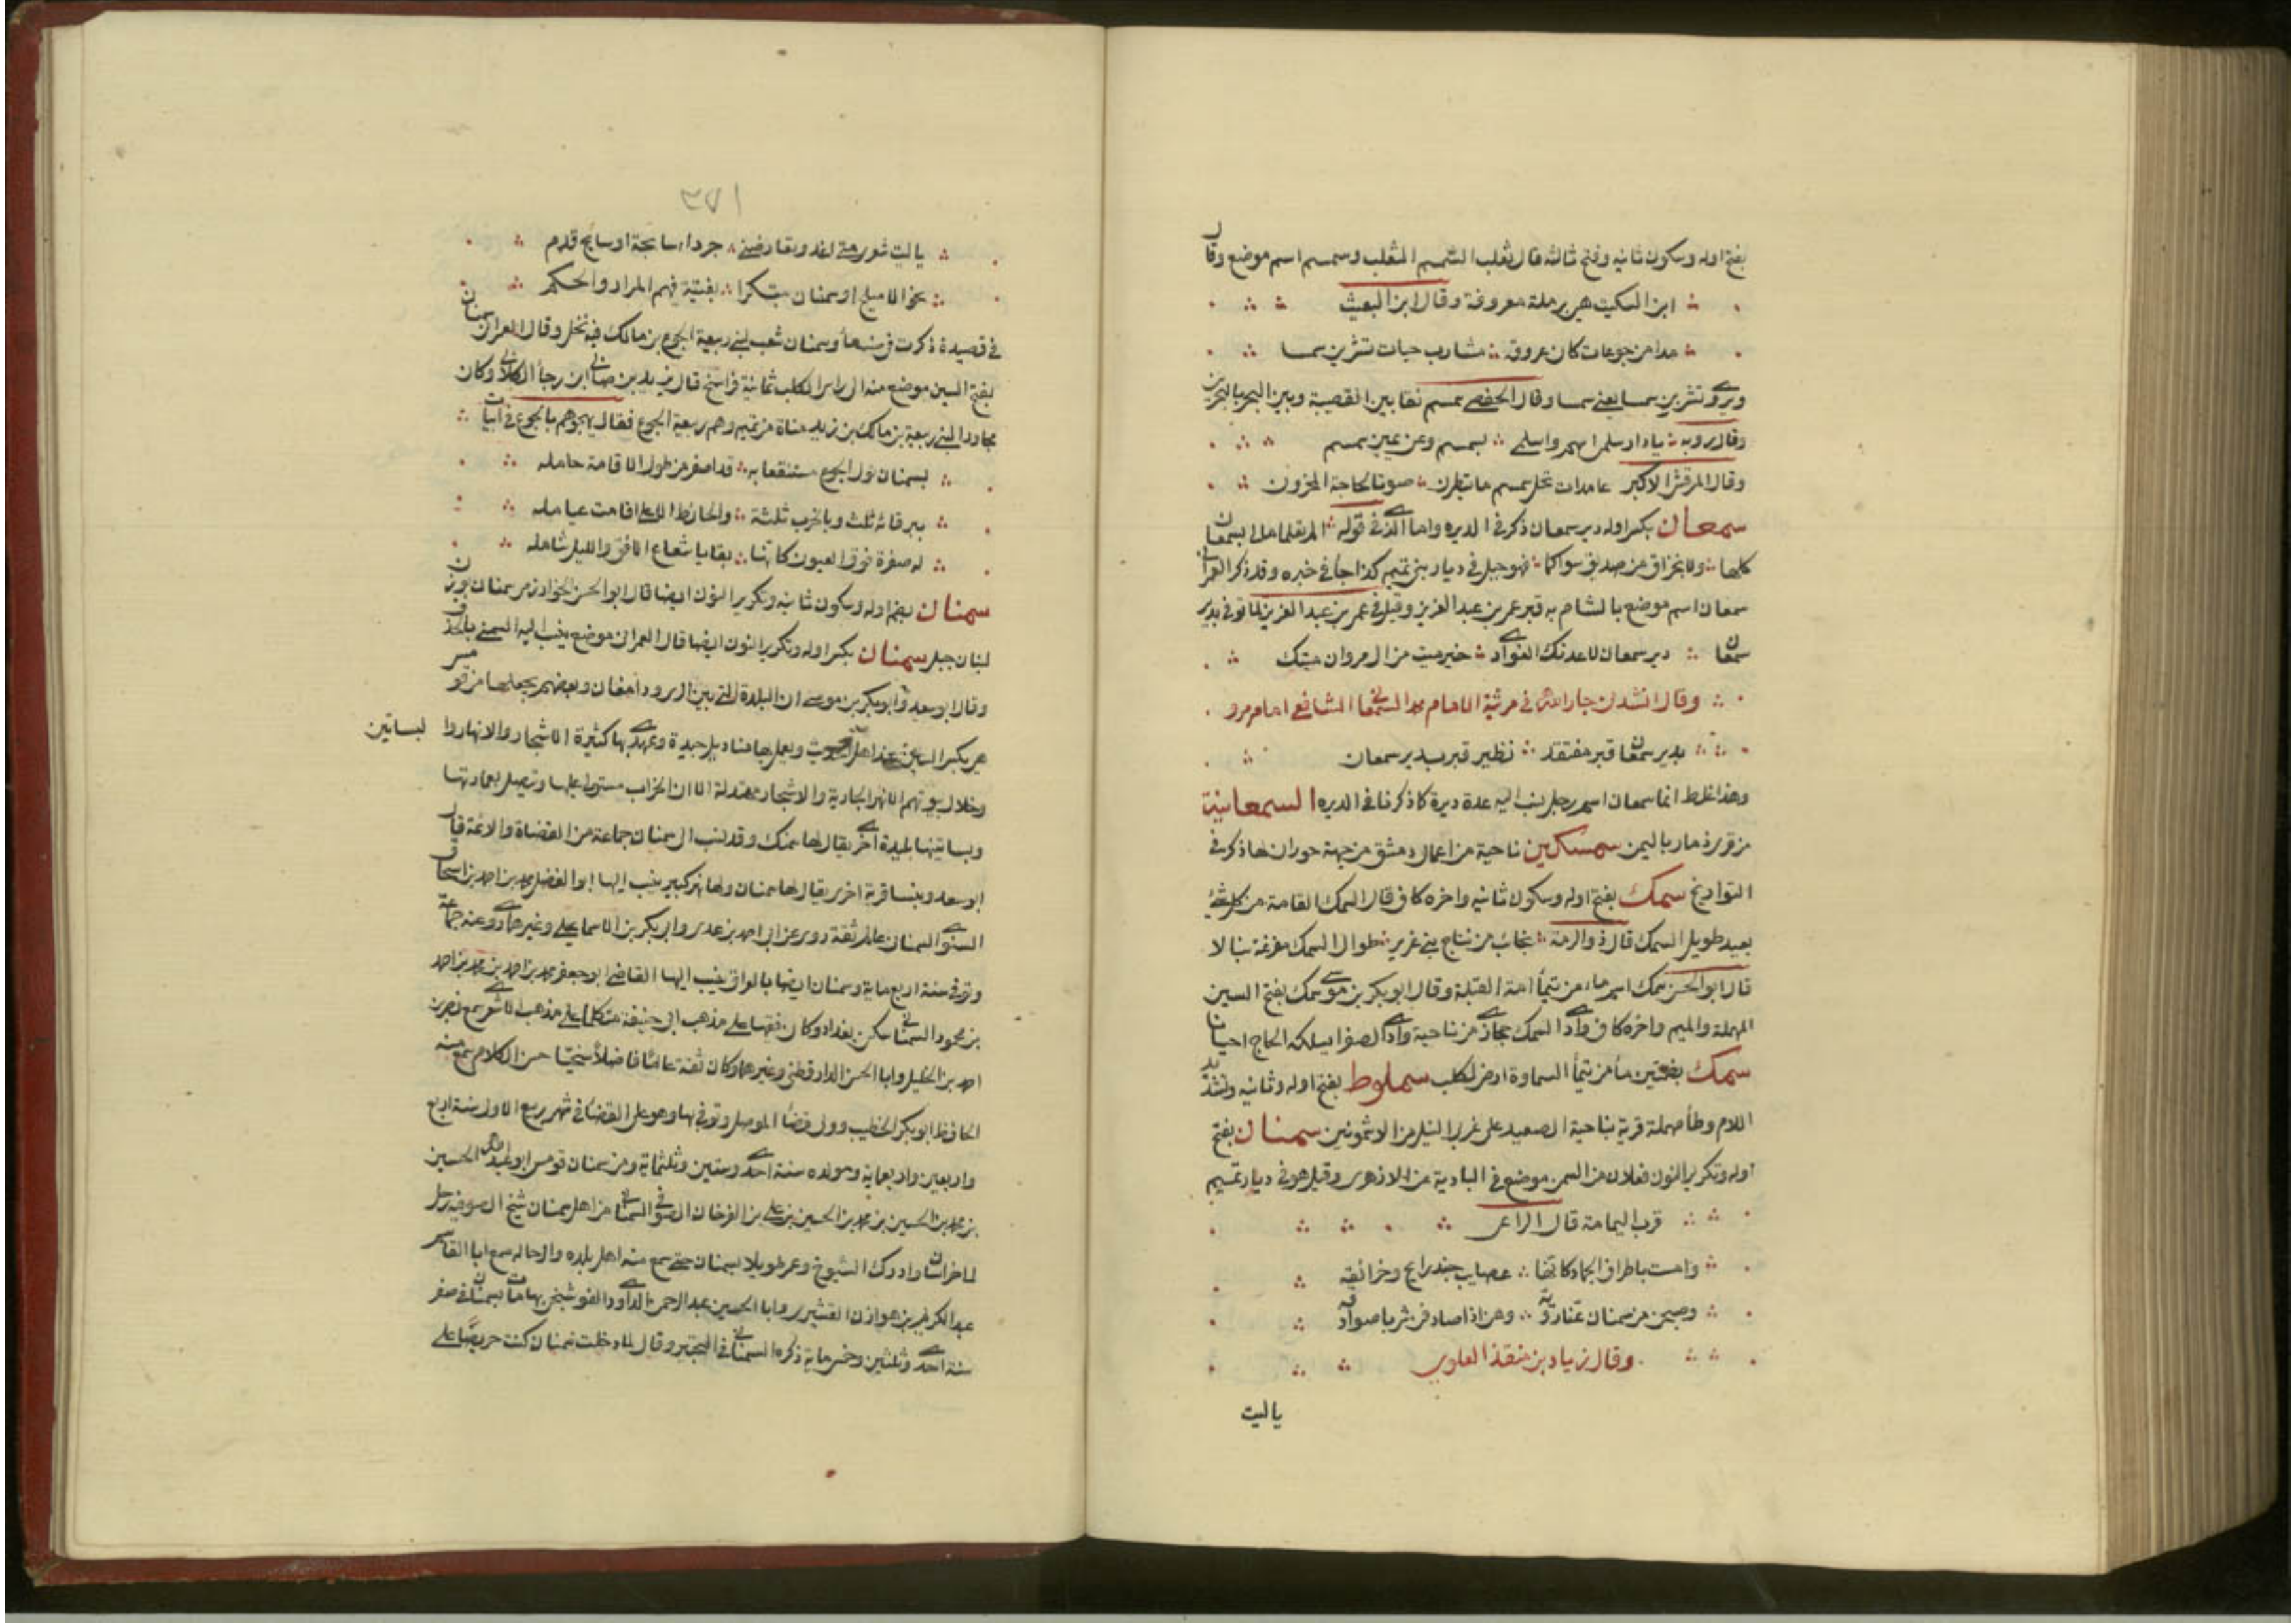 بفتح اوله وسكون ثانيه وفتح ثالثه قال ثعلب السمسم الثعلب وسمسم اسم موضع وقال
ابن السكيت هي رملة معروفة وقال ابن البعيث
مدامن جوعات كان عروقه مشارب حيات تشربن سمسما
ويروى تشربن سمسما يعني سما وقال الحفصي سمسم نقا بين القصيبة وبين البحر بالبحرين
وقال روبه يا دار سلمى اسلمي واسلمي بسمسم وعن يمين سمسم
وقال المرقش الاكبر عامدات لخل سمسم ما ينظرن صوتا لحاجة المحزون
سمعان بكسر اوله دير سمعان ذكر في الديره واما الذي في قوله الم تعلما مالي بسمعان
كلها ولا بخزاق من صديق سواكما فهو جبل في ديار بني تميم كذا جأ في خبره وقد ذكر العمراني
سمعان اسم موضع بالشام به قبر عمر بن عبد العزيز وقيل في عمر بن عبد العزيز لما توفي بدير
سمعان دير سمعان لا عدتك الغوادي خير ميت من ال مروان ميتك
وقال انشدني جار الله في مرثية الامام محمد السمعاني الشافعي امام مرو
بدير سمعان قبر مفتقد نظير قبر بدير سمعان
وهذا غلط انما سمعان اسم رجل نسب اليه عدة ديرة كما ذكرنا في الديره السمعانية
من قرى ذمار باليمن سمسكين ناحية من اعمال دمشق من جهة حوران لها ذكر في
التواريخ سمك بفتح اوله وسكون ثانيه واخره كاف قال السمك القامة من كل شيء
بعيد طويل السمك قال ذو الرمة نجائب من نتاج بني غرير طوال السمك مفرغة نبالا
قال ابو الحسن سمك اسم ماء من تيمأ امة القبلة وقال ابو بكر بن موسى سمك بفتح السين
المهملة والميم واخره كاف وادي السمك حجازي من ناحية وادي الصفرا يسلكه الحاج احيانا
سمك بضمتين مأ من تيمأ السماوة ارض لكلب سملوط بفتح اوله وثانيه وتشديد
اللام وطأ مهملة قرية بناحية الصعيد على غربي النيل من الاشمونين سمنان بفتح
اوله وتكرير النون فعلان من السمن موضع في البادية عن الازهري وقيل هو في ديار تميم
قرب اليمامة قال الراعي
وامست باطراف الجماد كانها عصايب جند رايح وخرانقه
وصبحن من سمنان عينا روية وهن اذا صادفن شربا صوادقه
وقال زياد بن منقذ العدوي
يا ليت
٣٧١
يا ليت شعري متى اغدو تعارضني جرداء سابحة او سابح قدم
نحو الاميلح او سمنان مبتكرا بفتية فيهم المرار والحكم
في قصيدة ذكرت في صنعأ وسمنان شعب لبني ربيعة الجوع بن مالك فيه نخل وقال العمراني سمنان
بفتح السين موضع منه الى راس الكلب ثمانية فراسخ قال يزيد بن صابي ابن رجأ الكلابي وكان
مجاورا لبني ربيعة بن مالك بن زيد مناة من تميم وهم ربيعة الجوع فقال يهجوهم بالجوع في ابيات
بسمنان بول الجوع مستنقعا به قد اصفر من طول الاقامة حامله
ببرقائه ثلث وبالخرب ثلثة والحائط الاعلى اقامت عيامله
له صفرة فوق العيون كانها بقايا شعاع الافق والليل شامله
سمنان بضم اوله وسكون ثانيه وتكرير النون ايضا قال ابو الحسن الخوارزمي سمنان بوزن
لبنان جبل سمنان بكسر اوله وتكرير النون ايضا قال العمراني موضع ينسب اليه السمني بالحذف
وقال ابو سعد وابو بكر بن موسى ان البلدة التي بين الري ودامغان وبعضهم يجعلها من قومس
هي بكسر السين عند اهل الحديث ويعمل بها مناديل جيدة وعهدي بها كثيرة الاشجار والانهار والبساتين
وخلال بيوتهم الانهر الجارية والاشجار متهدلة الا ان الخراب مستول عليها ويتصل بعمارتها
وبساتينها بليدة اخرى يقال لها سمنك وقد نسب الى سمنان جماعة من القضاة والائمة قال
ابو سعد وبنسا قرية اخرى يقال لها سمنان ولها نهر كبير ينسب اليها ابو الفضل محمد بن احمد بن اسحاق
النسوي السمناني عالم ثقة روى عن ابي احمد بن عدي وابي بكر بن الاسماعيلي وغيرهما روى عنه جماعة
وتوفي سنة اربعماية وسمنان ايضا بالعراق ينسب اليها القاضي ابو جعفر محمد بن احمد بن محمد بن احمد
بن محمود السمناني سكن بغداد وكان فقيها على مذهب ابي حنيفة متكلما على مذهب الاشعري سمع نصر بن
احمد بن الخليل وابا الحسن الدارقطني وغيرهما وكان ثقة عالما فاضلا سخيا حسن الكلام سمع منه
الحافظ ابو بكر الخطيب وولي قضأ الموصل وتوفي بها وهو على القضأ في شهر ربيع الاول سنة اربع
واربعين واربعماية ومولده سنة احدى وستين وثلثماية ومن سمنان قومس ابو عبد الله الحسين
بن محمد بن الحسين بن محمد بن الحسين بن علي بن الفرخان الصوفي السمناني من اهل سمنان شيخ الصوفيه رحل
الى خراسان وادرك الشيوخ وعمر طويلا بسمنان حتى سمع منه اهل بلده والرحاله سمع ابا القاسم
عبد الكريم بن هوازن القشيري وابا الحسين عبد الرحمن الداودي الفوشنجي بها مات بسمنان في صفر
سنة احدى وثلثين وخمسماية ذكره السمعاني في التحبير وقال لما دخلت سمنان كنت حريصا على